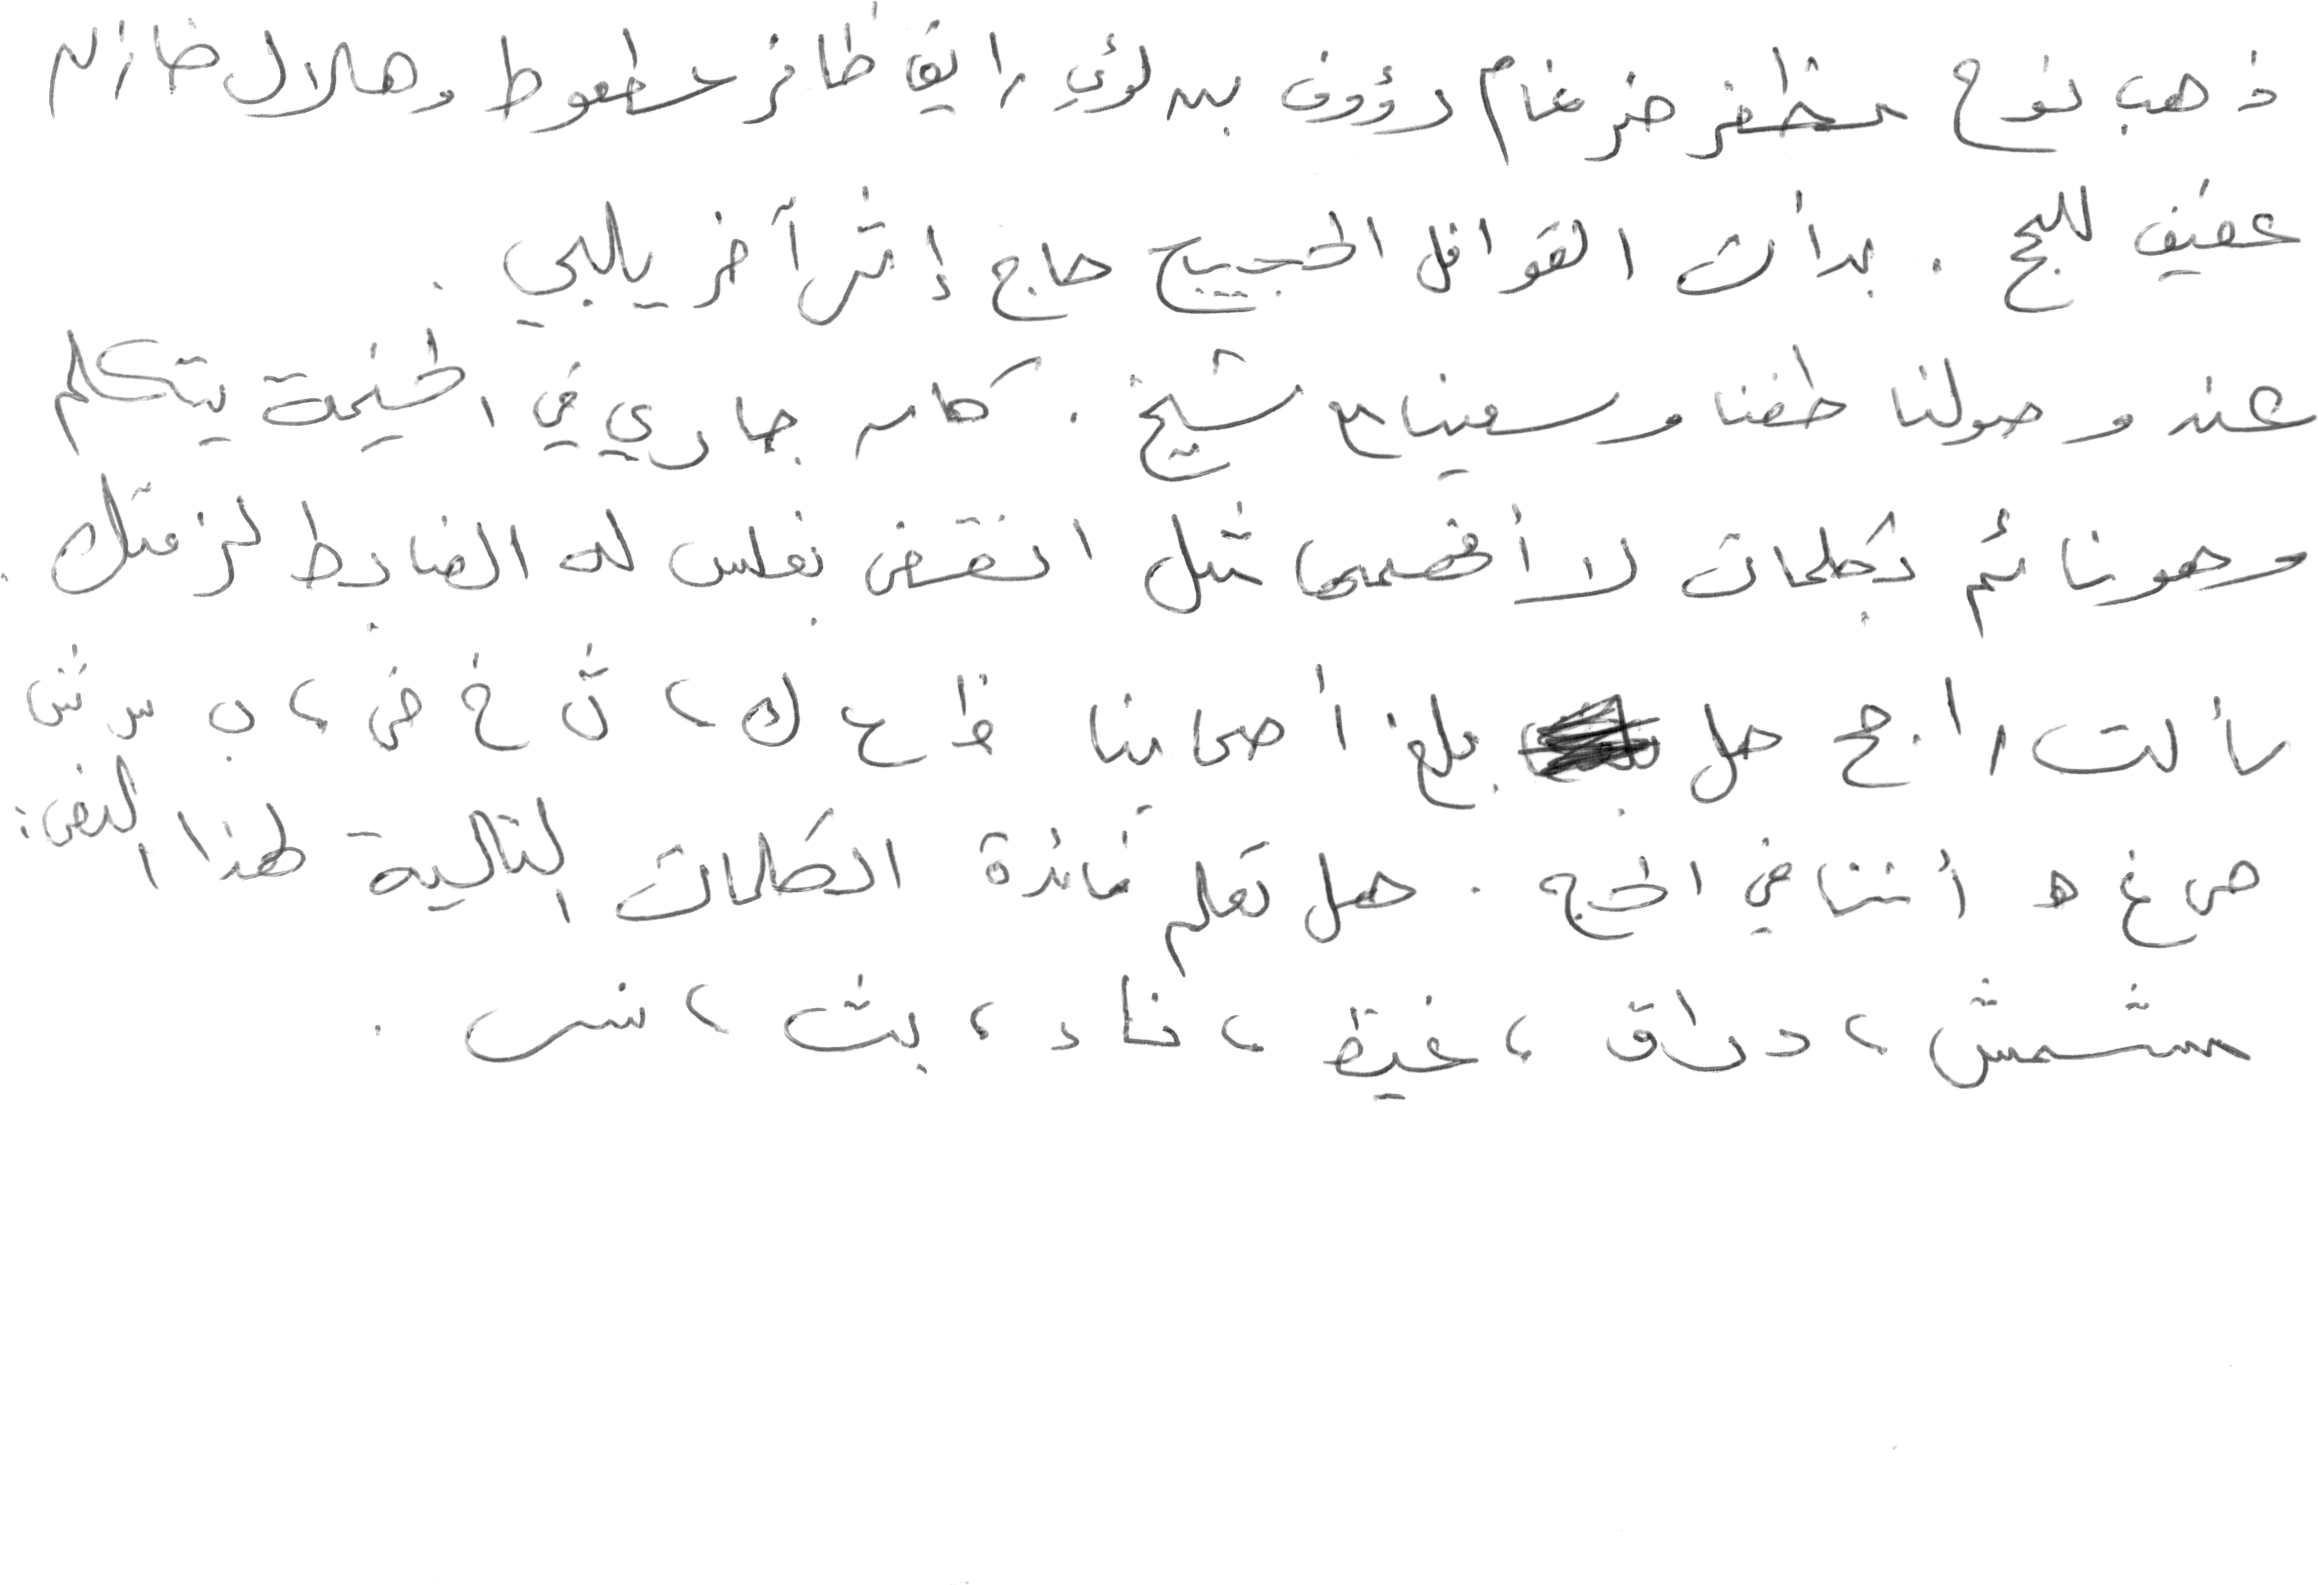 ذهب نوح مظفر ضرغام رؤوف بن لؤي رايق ظافر عطعوط وهلال خازم
عفيف للحج . بدأت القوافل الحجيج حاج إثر آخر يلبي .
عند وصولنا طفنا وسعينا مع شيخ . كان جاري في الخيمة يتكلم
وهو نائم بكلمات لا أفهمها مثل انقض نعلس له الضابط لزعتك .
سألت راجح هل بلغ أصحابنا ظ ع ك ، ث خ ض ، ب س ش
ص غ ه أننا في الحج . هل تعلم فائدة الكلمات التالية لهذا النص :
مشمش ، دراق ، غيظ ، ناء ، بث ، نس .